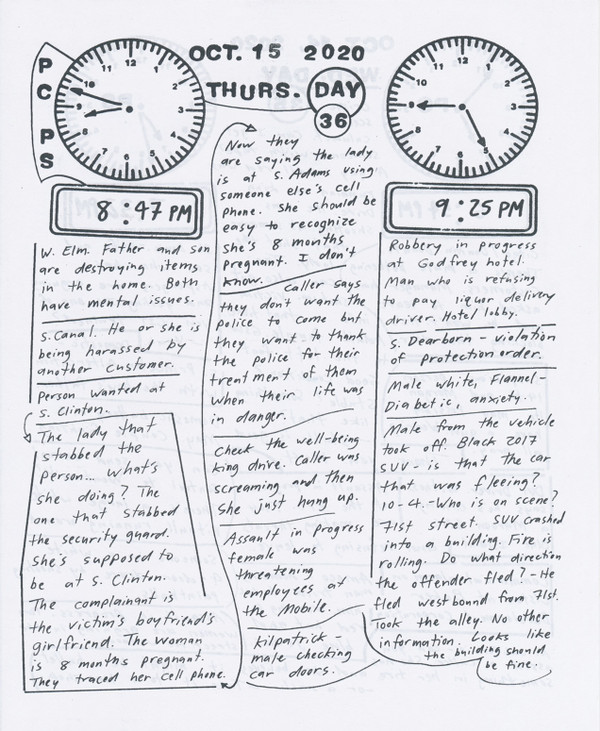 P
C
P
S
OCT. 15 2020
THURS. DAY
36
12
1
2
3
4
5
6
7
8
9
10
11
12
1
2
3
4
5
6
7
8
9
10
11
8:47 PM
W. Elm. Father and son
are destroying items
in the home. Both
have mental issues.
S. Canal. He or she is
being harassed by
another customer.
Person wanted at
S. Clinton.
The lady that
stabbed the
person... what's
she doing? The
one that stabbed
the security guard.
She's supposed to
be at S. Clinton.
The complainant is
the victim's boyfriend's
girlfriend. The woman
is 8 months pregnant.
They traced her cell phone.
Now they
are saying the lady
is at S. Adams using
someone else's cell
phone. She should be
easy to recognize.
She's 8 months
pregnant. I don't
know.
Caller says
they don't want the
police to come but
they want to thank
the police for their
treatment of them
when their life was
in danger.
Check the well-being
king drive. Caller was
screaming and then
she just hung up.
Assault in progress
female was
threatening
employees at
the Mobile.
Kilpatrick-
male checking
car doors.
9:25 PM
Robbery in progress
at Godfrey hotel.
Man who is refusing
to pay liquor delivery
driver. Hotel lobby.
S. Dearborn - violation
of protection order.
Male white, Flannel-
Diabetic, anxiety.
Male from the vehicle
took off. Black 2017
SUV - is that the car
that was fleeing?
10-4. - Who is on scene?
71st street. SUV crashed
into a building. Fire is
rolling. Do what direction
the offender fled? - He
fled westbound from 71st.
Took the alley. No other
information. Looks like
the building should
be fine.